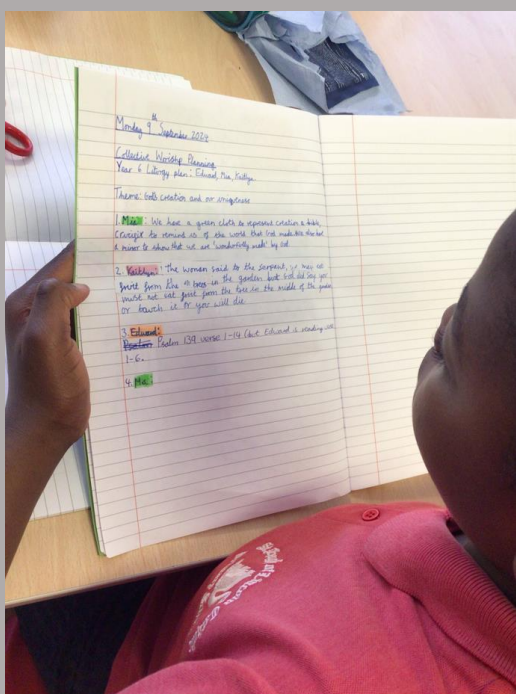 Monday 9th September 2024
Collective Worship Planning
Year 6 Liturgy plan: Edward, Mia, Kaitlyn
Theme: Gods creation and our uniqueness
1. Mia: We have a green cloth to represent creation a
crucifix to remind us of the world that God made. We also had
a mirror to show that we are "wonderfully made" by God
2. Kaitlyn: The women said to the serpent, we may eat
fruit from the trees in the garden but God did say you
must not eat fruit from the tree in the middle of the garden
or touch it or you will die.
3. Edward:
Psalm 139 verse 1-14 (but Edward is reading
1-6.
4. Mia: